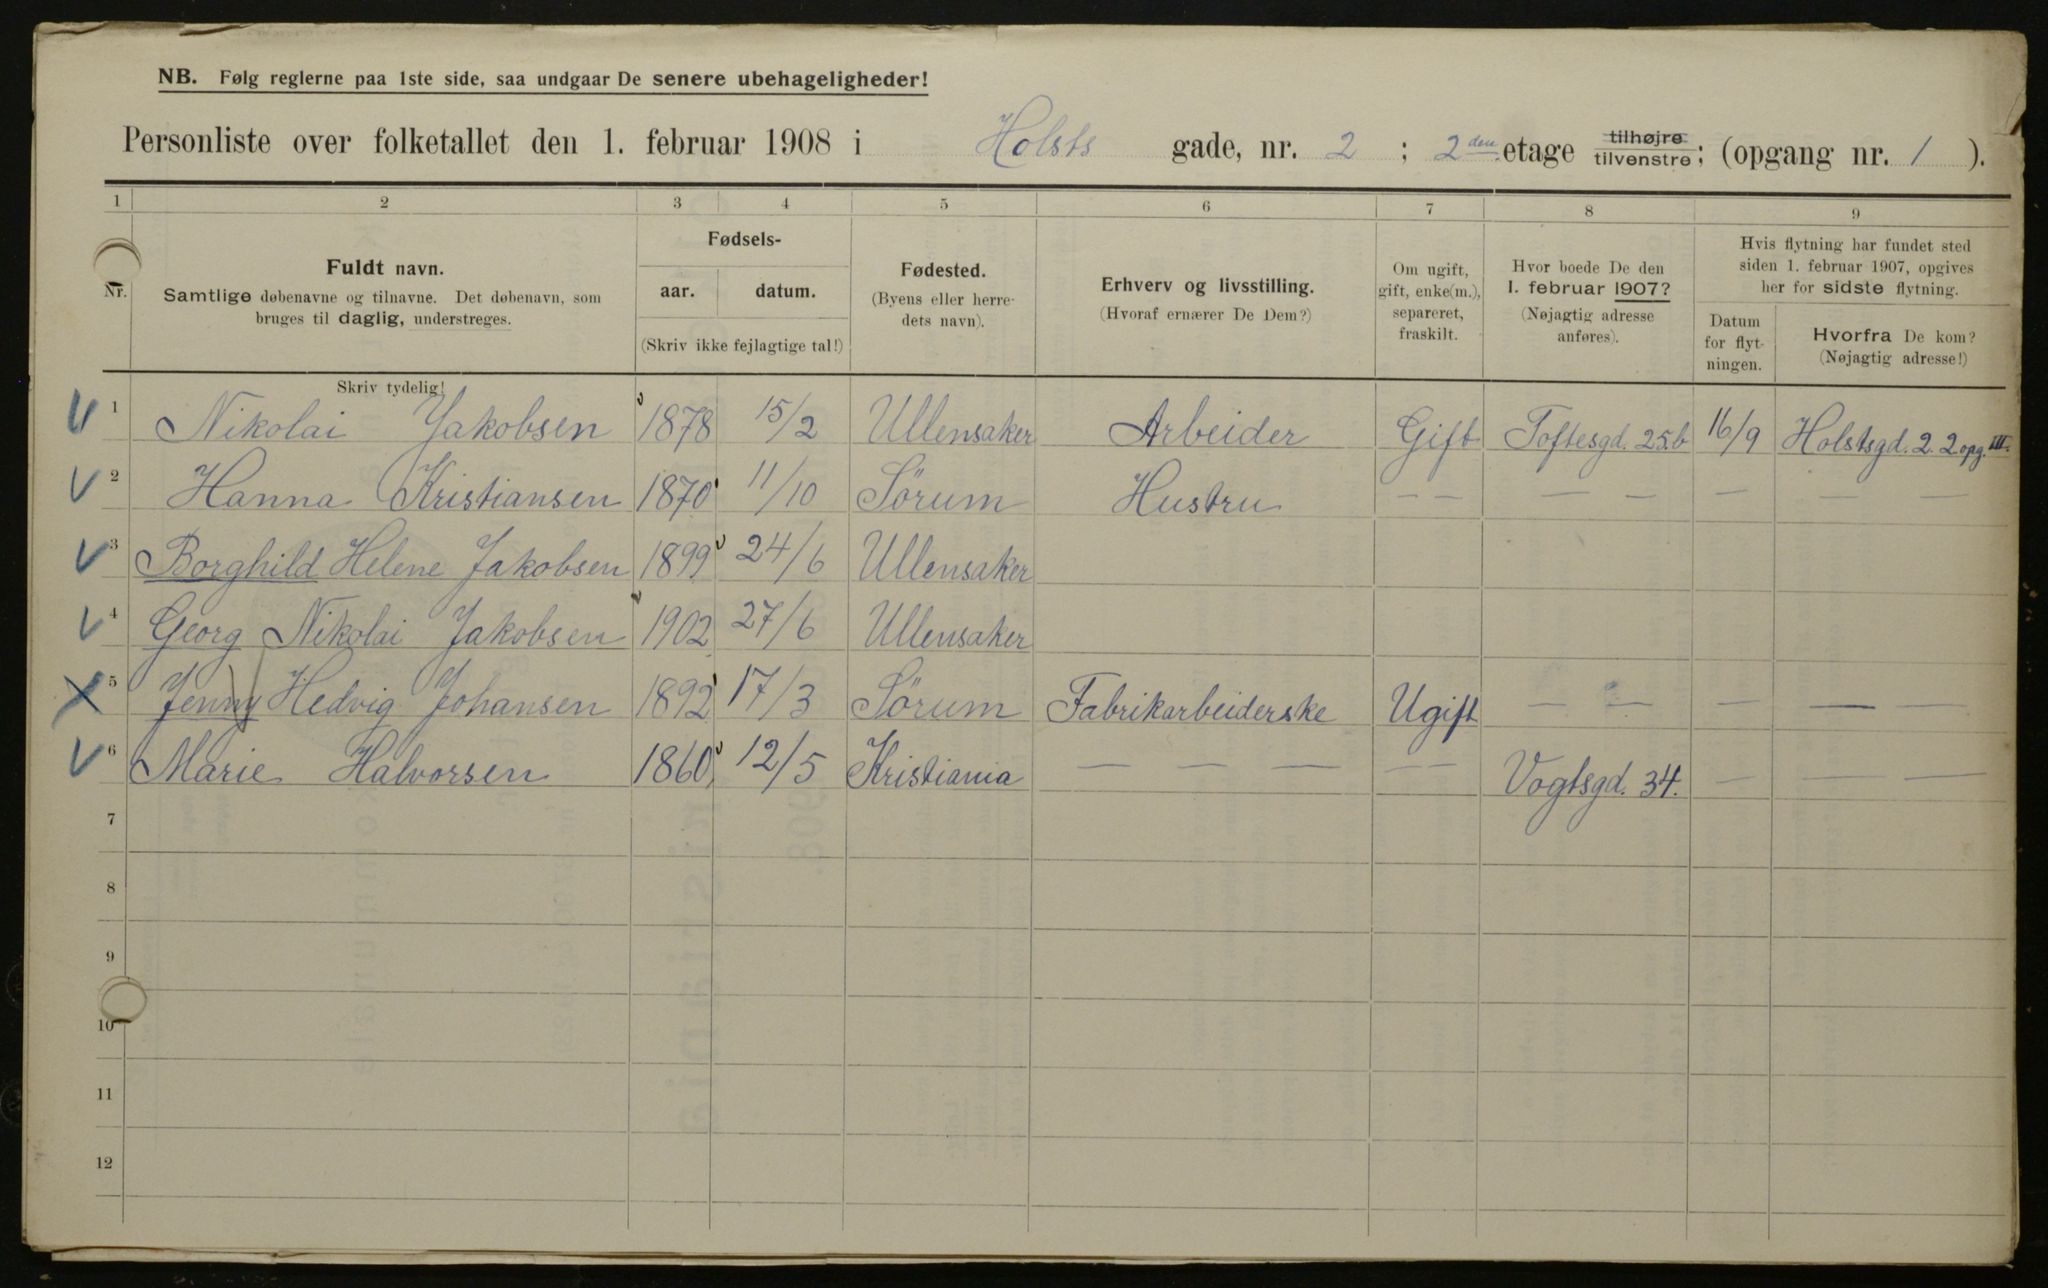 NB. Følg reglerne paa 1ste side, saa undgaar De senere ubehageligheder!
Personliste over folketallet den 1. februar 1908 i Holsts gade, nr. 2 ; 2den etage tilhøjre tilvenstre ; (opgang nr. 1 ).
1 2 3 4 5 6 7 8 9
Nr.
Fuldt navn.
Samtlige døbenavne og tilnavne. Det døbenavn, som
bruges til daglig, understreges.
Skriv tydelig!
Fødsels-
aar. datum.
(Skriv ikke fejlagtige tal!)
Fødested.
(Byens eller herre-
dets navn).
Erhverv og livsstilling.
(Hvoraf ernærer De Dem?)
Om ugift,
gift, enke(m.),
separeret,
fraskilt.
Hvor boede De den
1. februar 1907?
(Nøjagtig adresse
anføres).
Hvis flytning har fundet sted
siden 1. februar 1907, opgives
her for sidste flytning.
Datum
for flyt-
ningen.
Hvorfra De kom?
(Nøjagtig adresse!)
1 Nikolai Jakobsen 1878 15/2 Ullensaker Arbeider Gift Toftesgd. 25.b 16/9 Holstsgd. 2. 2 opg. III.
2 Hanna Kristiansen 1870 11/10 Sörum Hustru — — — — — — —
3 Borghild Helene Jakobsen 1899 24/6 Ullensaker
4 Georg Nikolai Jakobsen 1902 27/6 Ullensaker
5 Jenny Hedvig Johansen 1892 17/3 Sörum Fabrikarbeiderske Ugift — — — — —
6 Marie Halvorsen 1860 12/5 Kristiania — — — — — Vogtsgd. 34. — — —
7
8
9
10
11
12